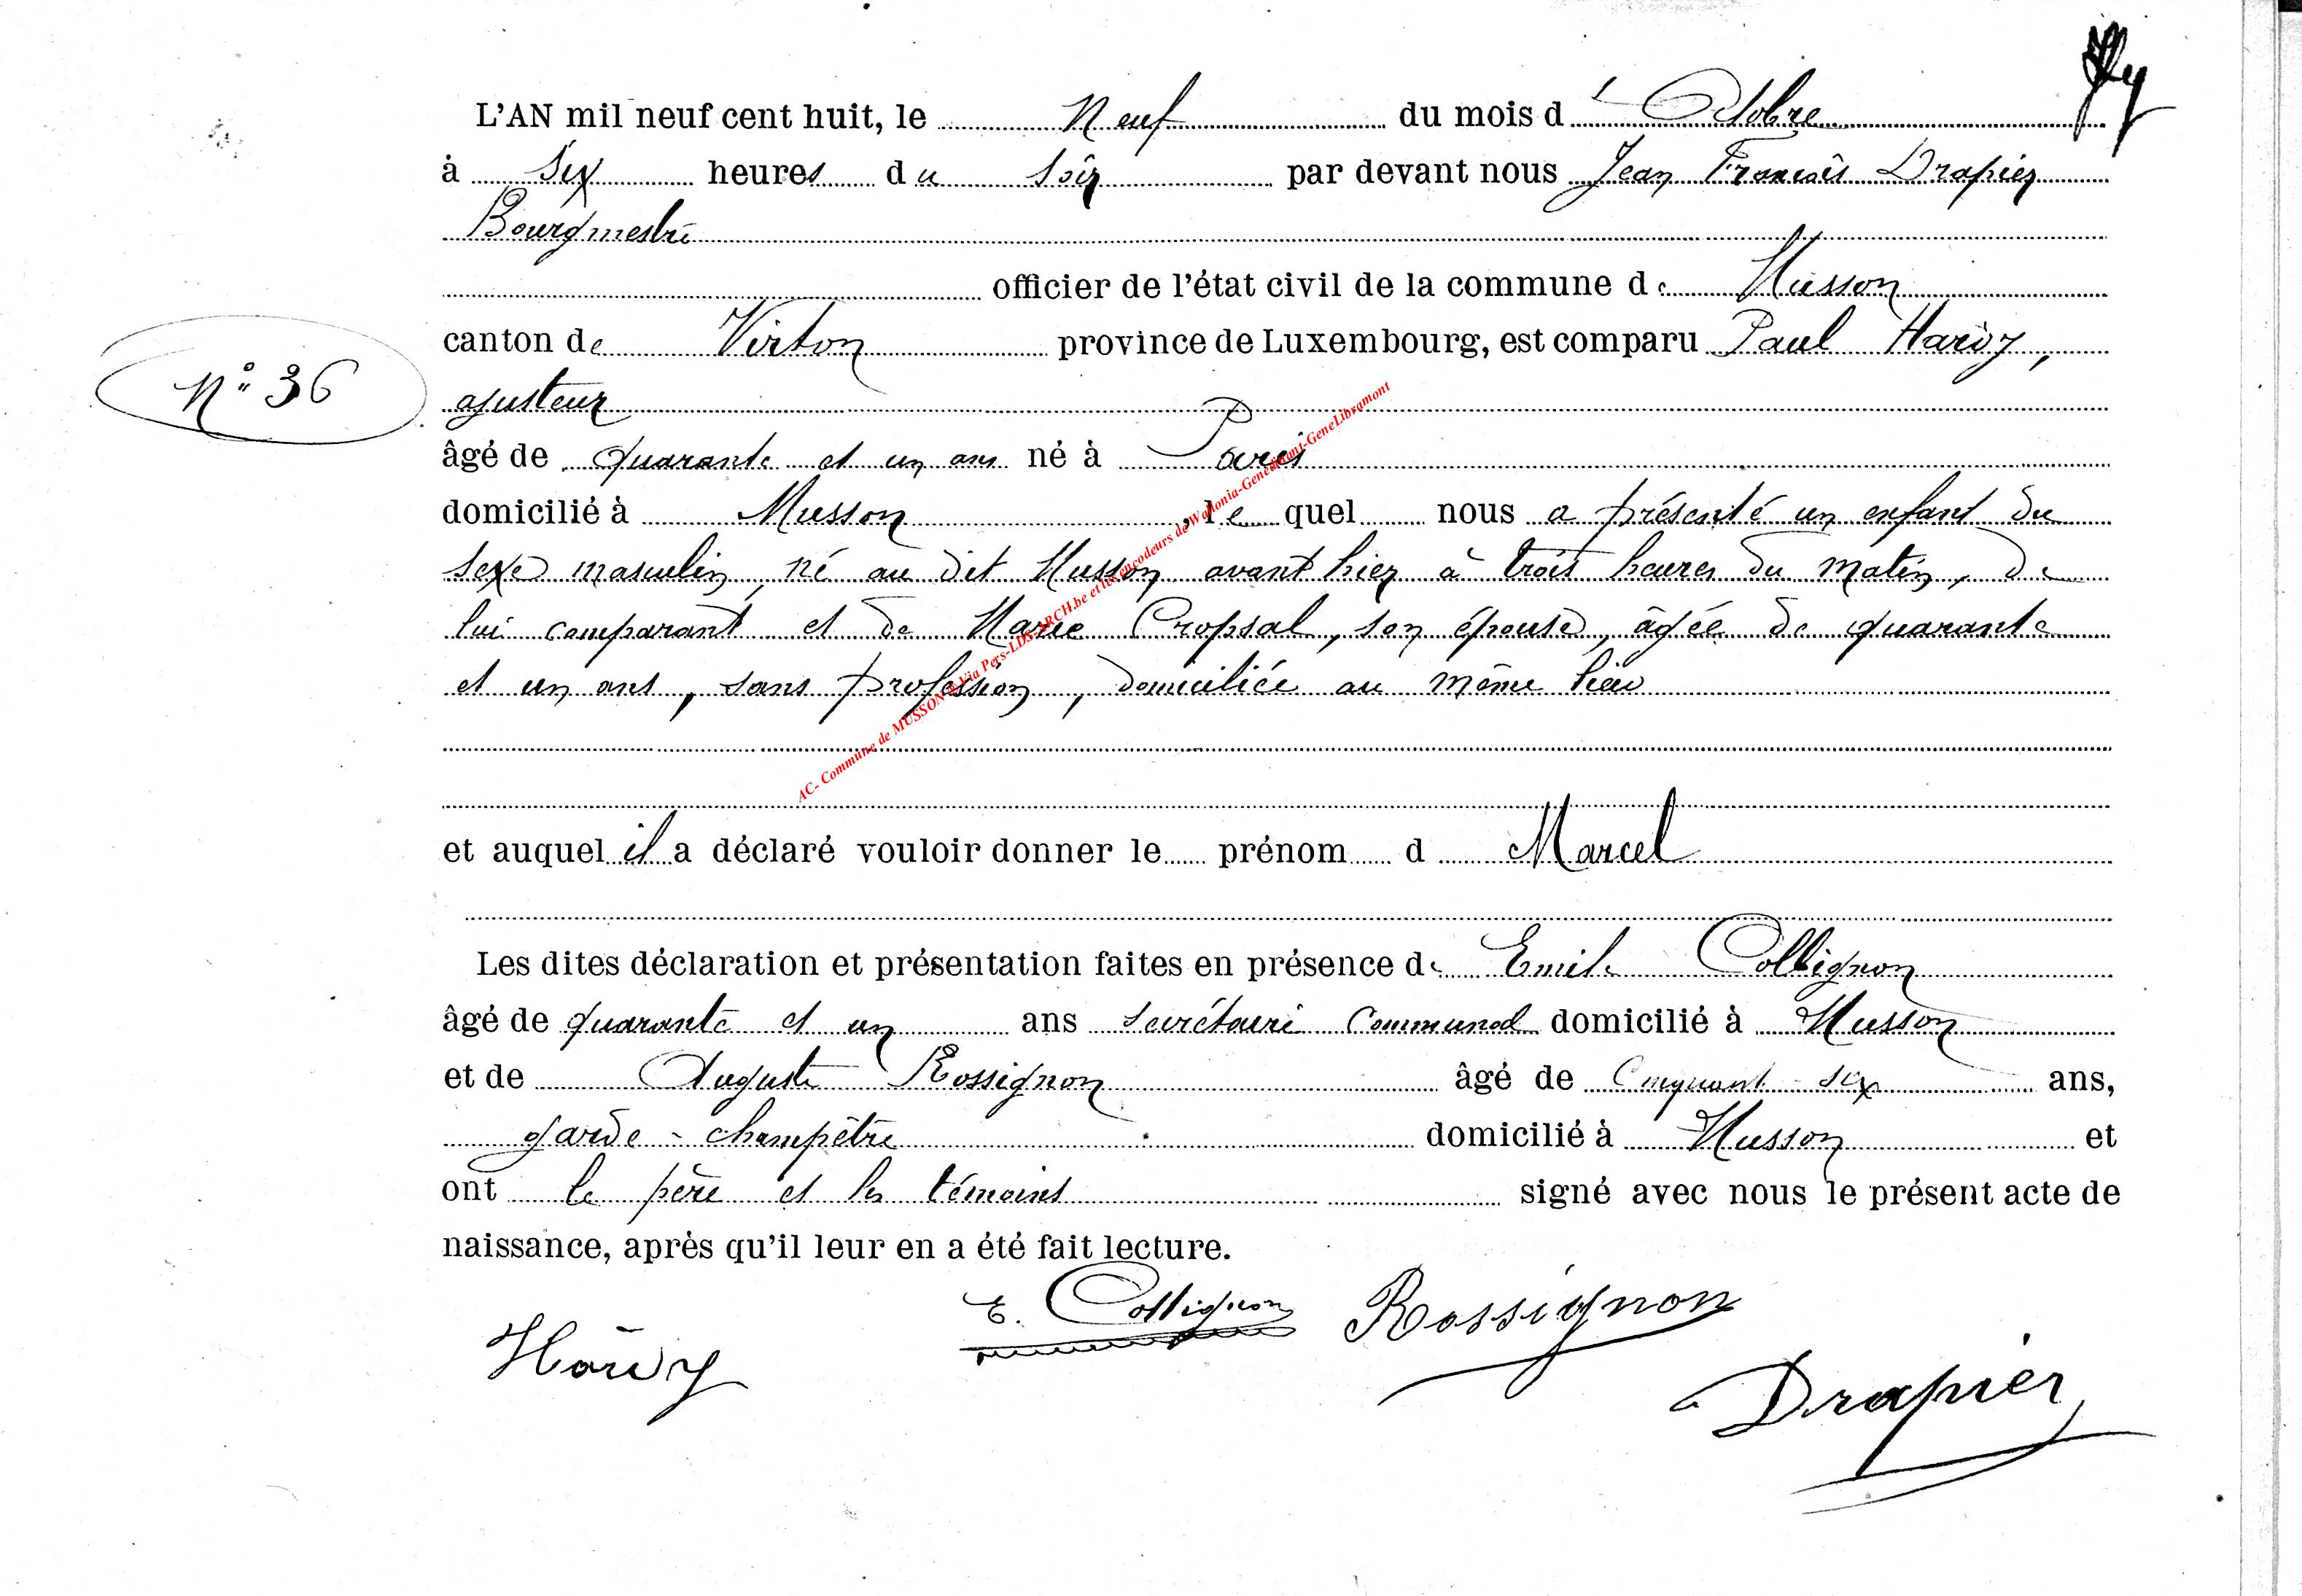 L'AN mil neuf cent huit, le Neuf du mois d'Octobre
à six heures du soir par devant nous Jean François Drapier
Bourgmestre
officier de l'état civil de la commune de Musson
canton de Virton province de Luxembourg, est comparu Paul Hardy,
N° 36
ajusteur
âgé de quarante et un ans né à Paris
domicilié à Musson, lequel nous a présenté un enfant du
sexe masculin, né au dit Musson avant hier à trois heures du matin, de
lui comparant et de Marie Cropsal, son épouse, âgée de quarante
et un ans, sans profession, domiciliée au même lieu
AC- Commune de MUSSON © Via Pers-LDS-ARCH.be et les encodeurs de Wallonia-Genedinant-GeneLibramont
et auquel il a déclaré vouloir donner le prénom d Marcel
Les dites déclaration et présentation faites en présence de Emile Collignon
âgé de quarante et un ans secrétaire Communal domicilié à Musson
et de Auguste Rossignon âgé de Cinquant six ans,
garde-champêtre domicilié à Musson et
ont le père et les témoins signé avec nous le présent acte de
naissance, après qu'il leur en a été fait lecture.
E. Collignon Rossignon
Hardy
Drapier